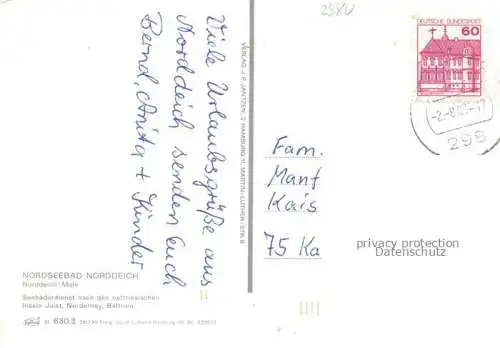 298V
DEUTSCHE BUNDESPOST
60
-2.-8.
298
Viele Urlaubsgrüße aus
Norddeich senden Euch
Bernd, Anita + Kinder
VERLAG J. P. JANTZEN, 2 HAMBURG 11, MARTIN-LUTHER-STR. 8
Fam.
Manf
Kais
75 Ka
privacy protection
Datenschutz
NORDSEEBAD NORDDEICH
Norddeich-Mole
Seebäderdienst nach den ostfriesischen
Inseln Juist, Norderney, Baltrum
630.3